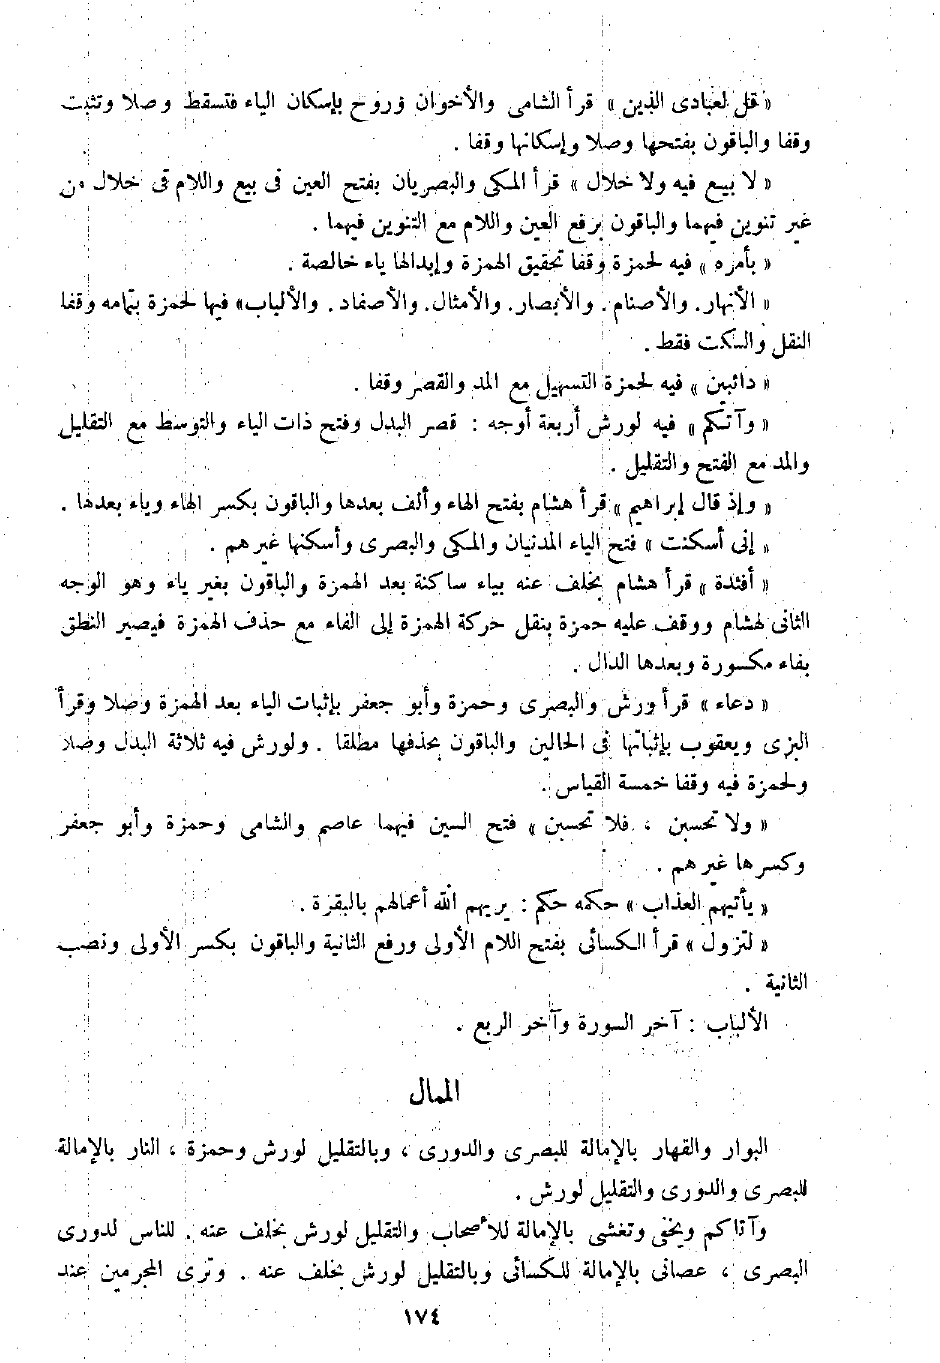 « قل لعبادى الذين » قرأ الشامى والأخوان وروح بإسكان الياء فتسقط وصلا وتثبت
وقفا والباقون بفتحها وصلا وإسكانها وقفا .
« لا بيع فيه ولا خلال » قرأ المكى والبصريان بفتح العين فى بيع واللام فى خلال من
غير تنوين فيهما والباقون برفع العين واللام مع التنوين فيهما .
« بأمره » فيه لحمزة وقفا تحقيق الهمزة وإبدالها ياء خالصة .
« الأنهار. والأصنام . والأبصار. والأمثال. والأصفاد . والألباب» فيها لحمزة بتمامه وقفا
النقل والسكت فقط .
« دائبين » فيه لحمزة التسهيل مع المد والقصر وقفا .
« وآتكم » فيه لورش أربعة أوجه : قصر البدل وفتح ذات الياء والتوسط مع التقليل
والمد مع الفتح والتقليل .
« وإذ قال إبراهيم » قرأ هشام بفتح الهاء وألف بعدها والباقون بكسر الهاء وياء بعدها .
« إنى أسكنت » فتح الياء المدنيان والمكى والبصرى وأسكنها غيرهم .
« أفئدة » قرأ هشام بخلف عنه بياء ساكنة بعد الهمزة والباقون بغير ياء وهو الوجه
الثانى لهشام ووقف عليه حمزة بنقل حركة الهمزة إلى الفاء مع حذف الهمزة فيصير النطق
بفاء مكسورة وبعدها الدال .
« دعاء » قرأ ورش والبصرى وحمزة وأبو جعفر بإثبات الياء بعد الهمزة وصلا وقرأ
البزى ويعقوب بإثباتها فى الحالين والباقون بحذفها مطلقا . ولورش فيه ثلاثة البدل وصلا
ولحمزة فيه وقفا خمسة القياس .
« ولا تحسبن ، فلا تحسبن » فتح السين فيهما عاصم والشامى وحمزة وأبو جعفر
وكسرها غيرهم .
« يأتيهم العذاب » حكمه حكم : يريهم الله أعمالهم بالبقرة .
« لتزول » قرأ الكسائى بفتح اللام الأولى ورفع الثانية والباقون بكسر الأولى ونصب
الثانية .
الألباب : آخر السورة وآخر الربع .
الممال
البوار والقهار بالإمالة للبصرى والدورى ، وبالتقليل لورش وحمزة ، النار بالإمالة
للبصرى والدورى والتقليل لورش .
وآتاكم ويخفى وتغشى بالإمالة للأصحاب والتقليل لورش بخلف عنه . للناس لدورى
البصرى ، عصانى بالإمالة للكسائى وبالتقليل لورش بخلف عنه . وترى المجرمين عند
١٧٤